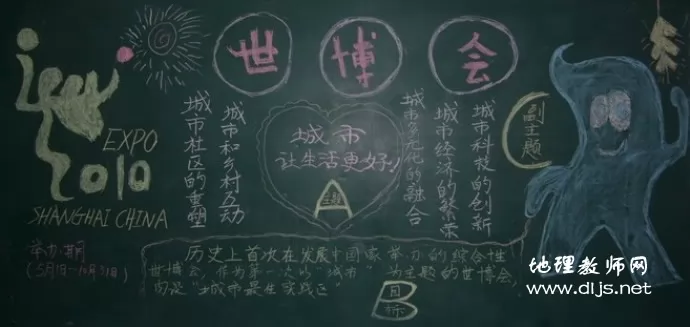 世博会
EXPO
2010
SHANGHAI CHINA
举办期间
(5月1日-10月31日)
城市社区的重塑
城市和乡村互动
城市
让生活更好!
主题
A
城市多元化的融合
城市经济的繁荣
城市科技的创新
副主题
历史上首次在发展中国家举办的综合性
世博会,作为第一次以"城市 为主题的世博会,
B
目标
地理教师网
www.dljs.net